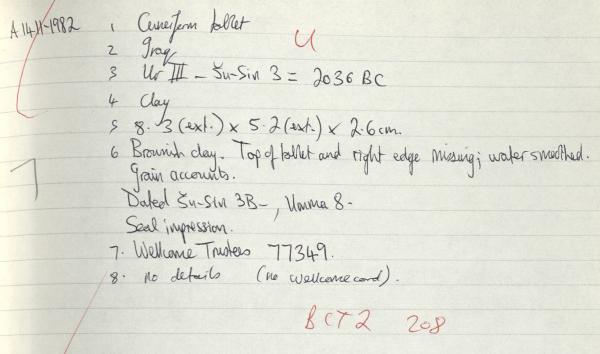 A1411-1982 1 Cuneiform tablet
U
2 Iraq
3 Ur III - Šu-Sin 3 = 2036 BC
4 Clay
5 8.3 (ext.) x 5.2 (ext.) x 2.6 cm.
6 Brownish clay. Top of tablet and right edge missing; water smoothed.
Grain accounts.
Dated Šu-Sin 3B-, Umma 8-
Seal impression.
7. Wellcome Trustees 77349.
8. no details (no wellcome card).
BCT2 208